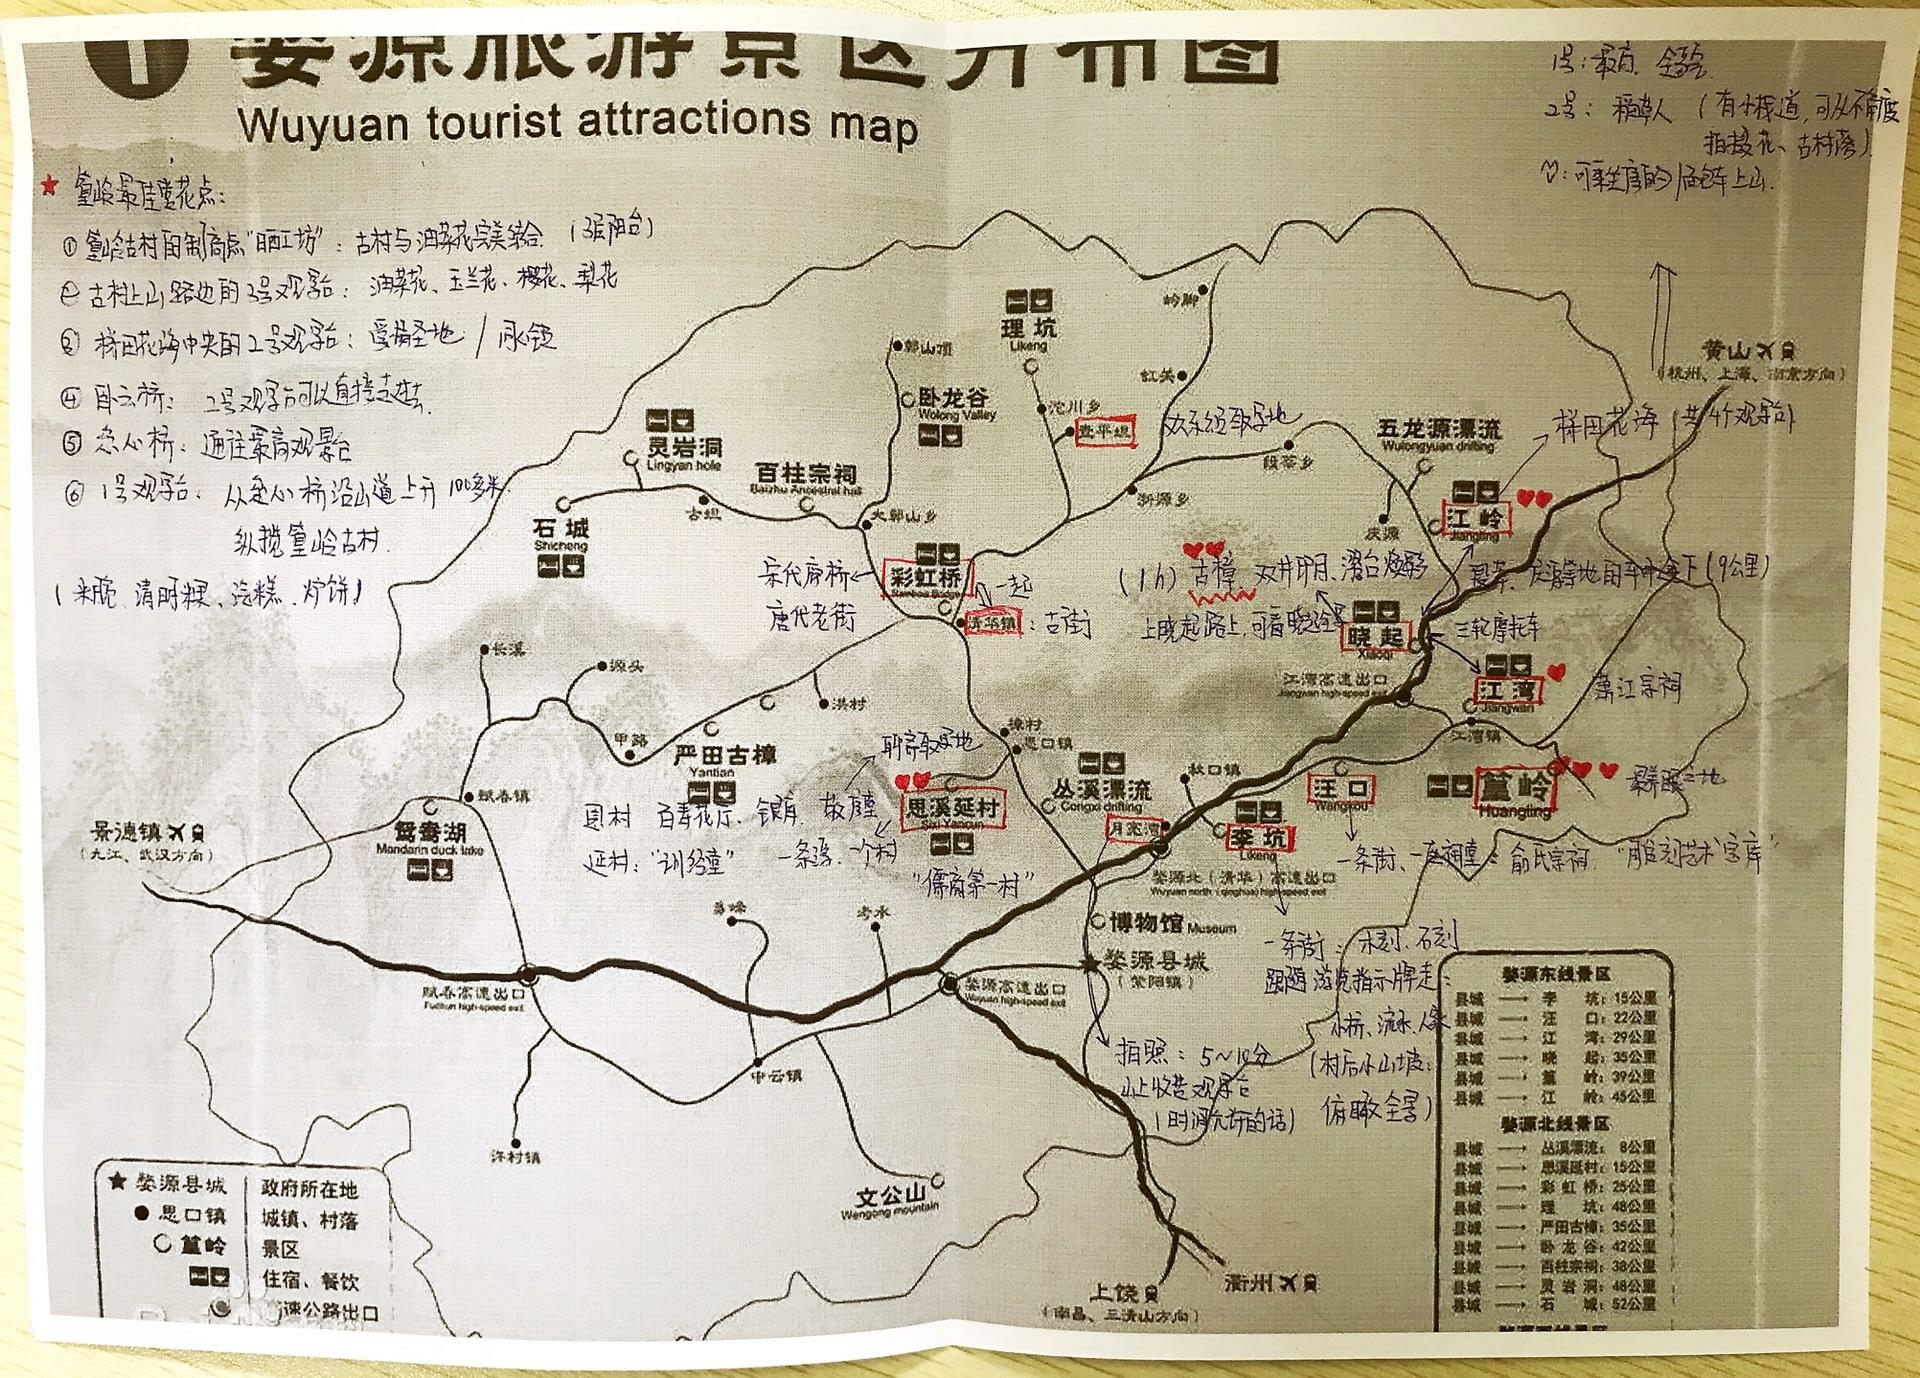 婺源旅游景区分布图
Wuyuan tourist attractions map
1号：最高、全景
2号：稻草人（有小栈道，可以不同角度
拍摄花、古村落）
可乘坐景区的面包车上山.
★ 篁岭最佳赏花点：
① 篁岭古村自制商点"晒工坊"：古村与油菜花完美结合（3层阳台）
② 古村上山路边的3号观景台：油菜花、玉兰花、樱花、梨花
③ 梯田花海中央的2号观景台：
④ 卧云桥：2号观景台可以直接走过去.
⑤ 垒心桥：通往最高观景台
⑥ 1号观景台：从垒心桥沿山道上升100多米,
纵揽篁岭古村.
清明粿、汽糕、炉饼）
岭脚
理坑
Likeng
鄣山顶
虹关
黄山
（杭州、上海、南京方向）
卧龙谷
Wolong Valley
沱川乡
查平坦
灵岩洞
Lingyan hole
五龙源漂流
Wulongyuan drifting
梯田花海（共4个观景台）
段莘乡
百柱宗祠
Baizhu Ancestral hall
古坦
浙源乡
大鄣山乡
石城
Shicheng
庆源
江岭
Jiangling
宋代廊桥
彩虹桥
Rainbow Bridge
一起
（1h）古樟、双井印月、濯台
唐代老街
清华镇
：古街
上晓起路上，可看晓起全景
晓起
Xiaoqi
三轮摩托车
长溪
源头
江湾高速出口
Jiangwan high-speed exit
江湾
Jiangwan
萧江宗祠
洪村
江湾镇
甲路
严田古樟
Yantian
聊斋取景地
思口镇
丛溪漂流
Congxi drifting
秋口镇
汪口
Wangkou
篁岭
Huangling
赋春镇
思溪延村
Sixi Yancun
月亮湾
李坑
Likeng
思村 百寿花厅、银库、敬序堂
景德镇
（九江、武汉方向）
鸳鸯湖
Mandarin duck lake
延村："训经堂"
"儒商第一村"
一条街、一座祠堂：俞氏宗祠."雕刻艺术宝库"
婺源北（清华）高速出口
Wuyuan north (qinghua) high-speed exit
考水
博物馆 Museum
一条街：木刻、石刻
婺源县城
（紫阳镇）
跟随游览指示牌走：
赋春高速出口
Fuchun high-speed exit
婺源高速出口
Wuyuan high-speed exit
小桥、流水、人家
（村后小山坡：
俯瞰全景）
拍照：5~10分
山上收费观景台
（时间允许的话）
中云镇
许村镇
文公山
Wengong mountain
上饶
（南昌、三清山方向）
衢州
婺源东线景区
县城 → 李坑：15公里
县城 → 汪口：22公里
县城 → 江湾：29公里
县城 → 晓起：35公里
县城 → 篁岭：39公里
县城 → 江岭：45公里
婺源北线景区
县城 → 丛溪漂流：8公里
县城 → 思溪延村：15公里
县城 → 彩虹桥：25公里
县城 → 理坑：48公里
县城 → 严田古樟：35公里
县城 → 卧龙谷：42公里
县城 → 百柱宗祠：38公里
县城 → 灵岩洞：48公里
县城 → 石城：52公里
★ 婺源县城 政府所在地
● 思口镇 城镇、村落
○ 篁岭 景区
住宿、餐饮
高速公路出口